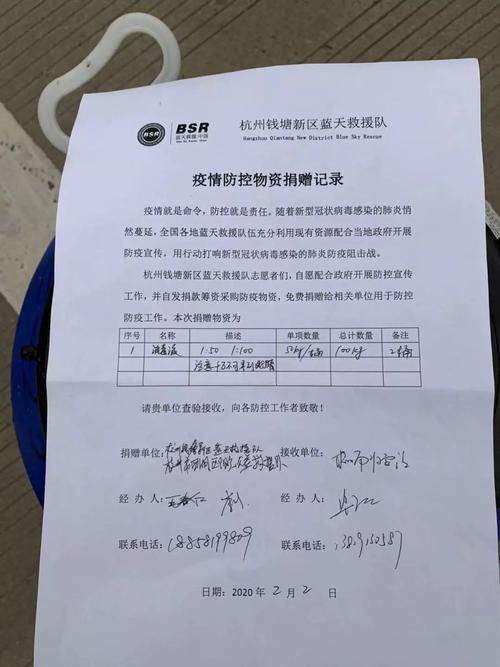 BSR
蓝天救援·中国
杭州钱塘新区蓝天救援队
Hangzhou Qiantang New District Blue Sky Rescue
疫情防控物资捐赠记录
疫情就是命令，防控就是责任，随着新型冠状病毒感染的肺炎悄
然蔓延，全国各地蓝天救援队伍充分利用现有资源配合当地政府开展
防疫宣传，用行动打响新型冠状病毒感染的肺炎防疫阻击战。
杭州钱塘新区蓝天救援队志愿者们，自愿配合政府开展防控宣传
工作，并自发捐款筹资采购防疫物资，免费捐赠给相关单位用于防控
防疫工作。本次捐赠物资为
序号 名称 描述 单项数量 总计数量 备注
1 消毒液 1:50 1:100 50kg/桶 100kg 2桶
注意
请贵单位查验接收，向各防控工作者致敬！
捐赠单位：杭州钱塘新区蓝天救援队 接收单位：
经 办 人： 经 办 人：
联系电话：18858199809 联系电话：
日期：2020 年 2 月 2 日